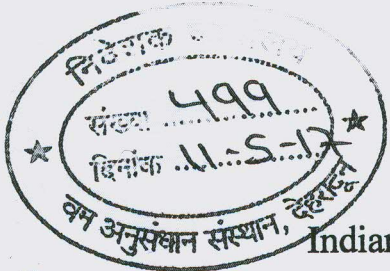 निदेशक
संख्या 499
दिनांक 11-5-17
वन अनुसंधान संस्थान, देहरादून
Indian